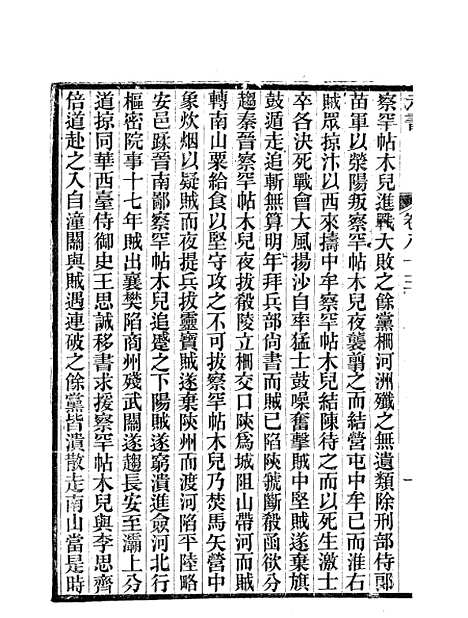 元書 卷八十三 一
察罕帖木兒進戰大敗之餘黨柵河洲殲之無遺類除刑部侍郞
苗軍以滎陽叛察罕帖木兒夜襲翦之而結營屯中牟已而淮右
賊眾掠汴以西來擣中牟察罕帖木兒結陳待之而以死生激士
卒各決死戰會大風揚沙自率猛士鼓噪奮擊賊中堅賊遂棄旗
鼓遁走追斬無算明年拜兵部尙書而賊已陷陝虢斷殽函欲分
趨秦晉察罕帖木兒夜拔殽陵立柵交口陝爲城阻山帶河而賊
轉南山粟給食以堅守攻之不可拔察罕帖木兒乃焚馬矢營中
象炊烟以疑賊而夜提兵拔靈寶賊遂棄陝州而渡河陷平陸略
安邑蹂晉南鄙察罕帖木兒追蹙之下陽賊遂窮潰進僉河北行
樞密院事十七年賊出襄樊陷商州殘武關遂趨長安至灞上分
道掠同華西臺侍御史王思誠移書求援察罕帖木兒與李思齊
倍道赴之入自潼關與賊遇連破之餘黨皆潰散走南山當是時